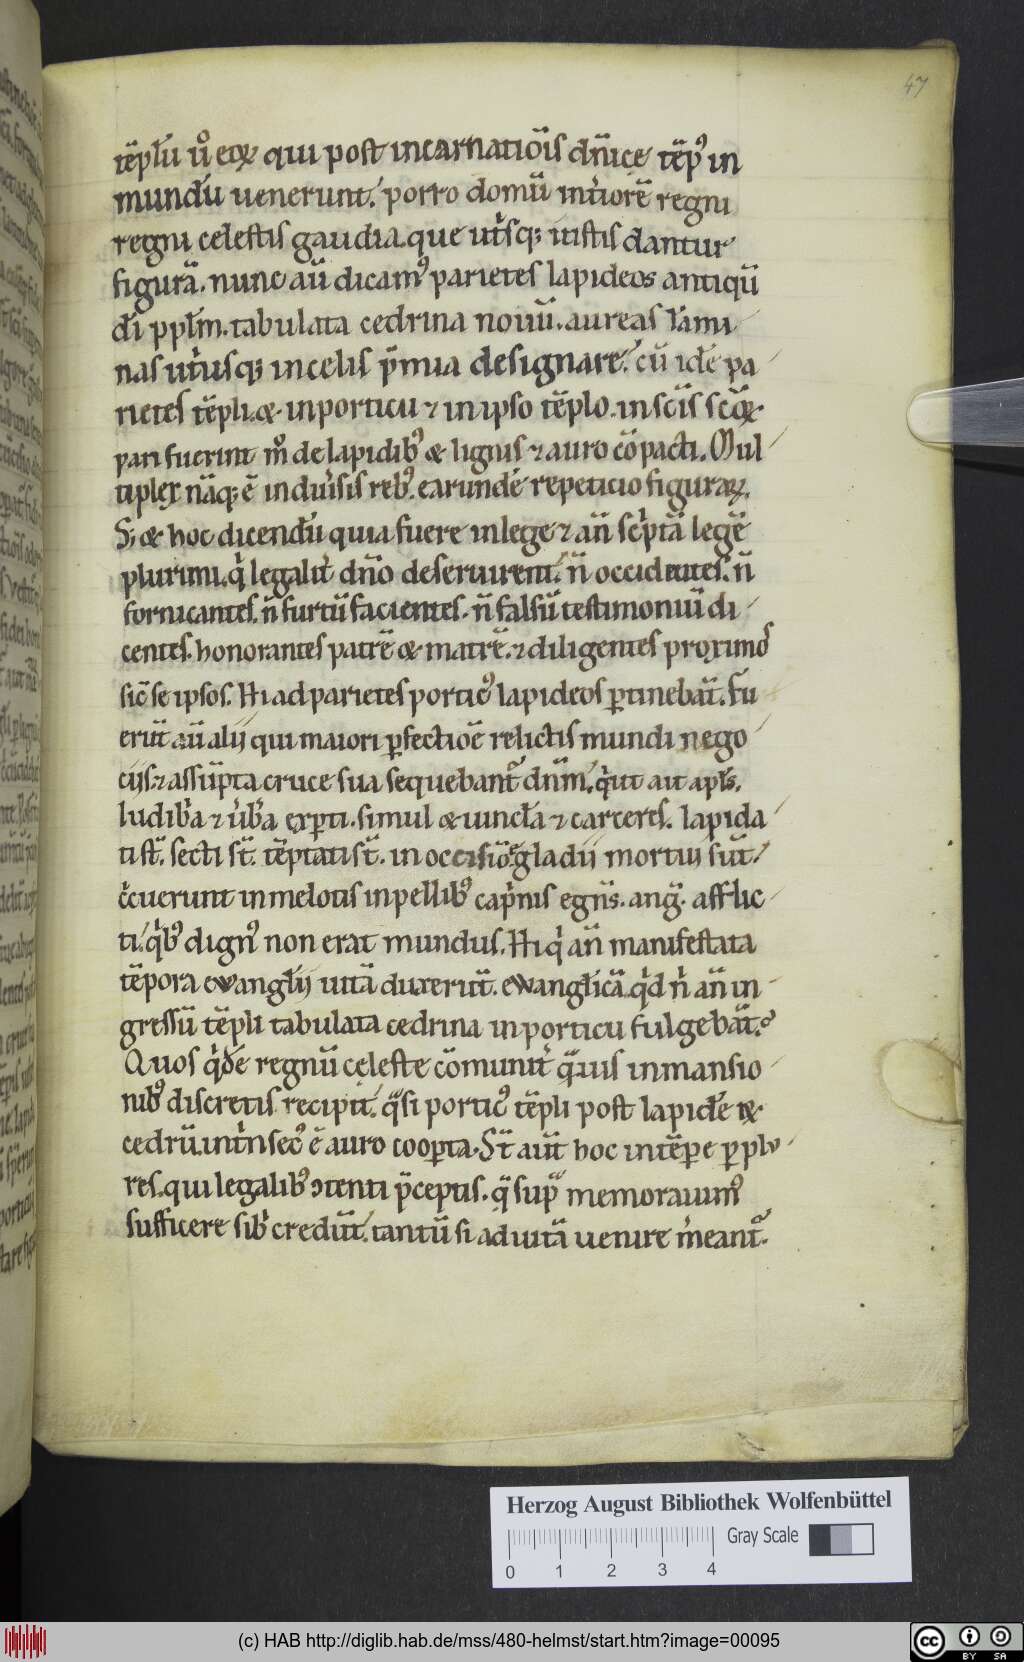 47
te̅plu̅ u̅o eoꝝ qui post incarnatio̅is dn̅ice te̅pꝰ in
mundu̅ uenerunt. porro domu̅ int̓iore̅ regni
regni celestis gaudia que utr̓sq; iustis dantur
figura̅. nunc au̅ dicamꝰ parietes lapideos antiqu̅
di̅ ppl̅m. tabulata cedrina nouu̅. aureas lami
nas utr̓usq; in celis p̅mia designare. cu̅ ide̅ pa
rietes te̅pli. & in porticu ⁊ in ipso te̅plo. in sc̅is sc̅oꝝ
pari fuerint m̊ de lapidibꝰ & lignis ⁊ auro co̅pacti. Mul
tiplex na̅q; e̅ in diuer̓sis rebꝰ. earunde̅ repeticio figuraꝝ.
S; & hoc dicendu̅ quia fuere in lege ⁊ an̅ scripta̅ lege̅
plurimi. q̓ legalit̓ dn̅o deseruirent. n̅ occidentes. n̅
fornicantes. n̅ furtu̅ facientes. n̅ falsu̅ testimoniu̅ di
centes. honorantes patre̅ & matre̅. ⁊ diligentes proximos
sic̅ se ipsos. Hi ad parietes porticꝰ lapideos ꝑtineba̅t. fu
eru̅t au̅ alij qui maiori ꝑfectio̅e relictis mundi nego
ciis. ⁊ assu̅pta cruce sua sequebant᷑ dn̅m. q̓ ut ait apl̅s.
ludibr̓a ⁊ u̓bera exꝑti. simul & uincl̅a ⁊ carceres. lapida
ti s̅t. secti s̅t. te̅ptati s̅t. in occisio̅e gladii mortui su̅t.
cir̓cuerunt in melotis in pellibꝰ capr̓nis egn̅s. ang̅. afflic
ti. q̓bꝰ dignꝰ non erat mundus. Hi q̓ an̅ manifestata
te̅pora ewangl̅ij uita̅ duxeru̅t. ewangl̅ica̅ q̓d n̓ an̅ in
gressu̅ te̅pli tabulata cedrina in porticu fulgeba̅t.
Quos q̓de̅ regnu̅ celeste co̅munit̓ q̅uis in mansio
nibꝰ discretis recipit. q̅si porticꝰ te̅pli post lapide̅ &
cedru̅ intr̓nsecꝰ e̅ auro cooꝑta. S̅t aut̅ hoc in te̅pore ꝑplu
res. qui legalibꝰ ꝯtenti p̅ceptis. q̅ sup̅ memorauimꝰ
sufficere sib̓ credu̅t. tantu̅ si ad uita̅ uenire m̓eant᷑.
Herzog August Bibliothek Wolfenbüttel
Gray Scale
0 1 2 3 4
(c) HAB http://diglib.hab.de/mss/480-helmst/start.htm?image=00095
cc BY SA